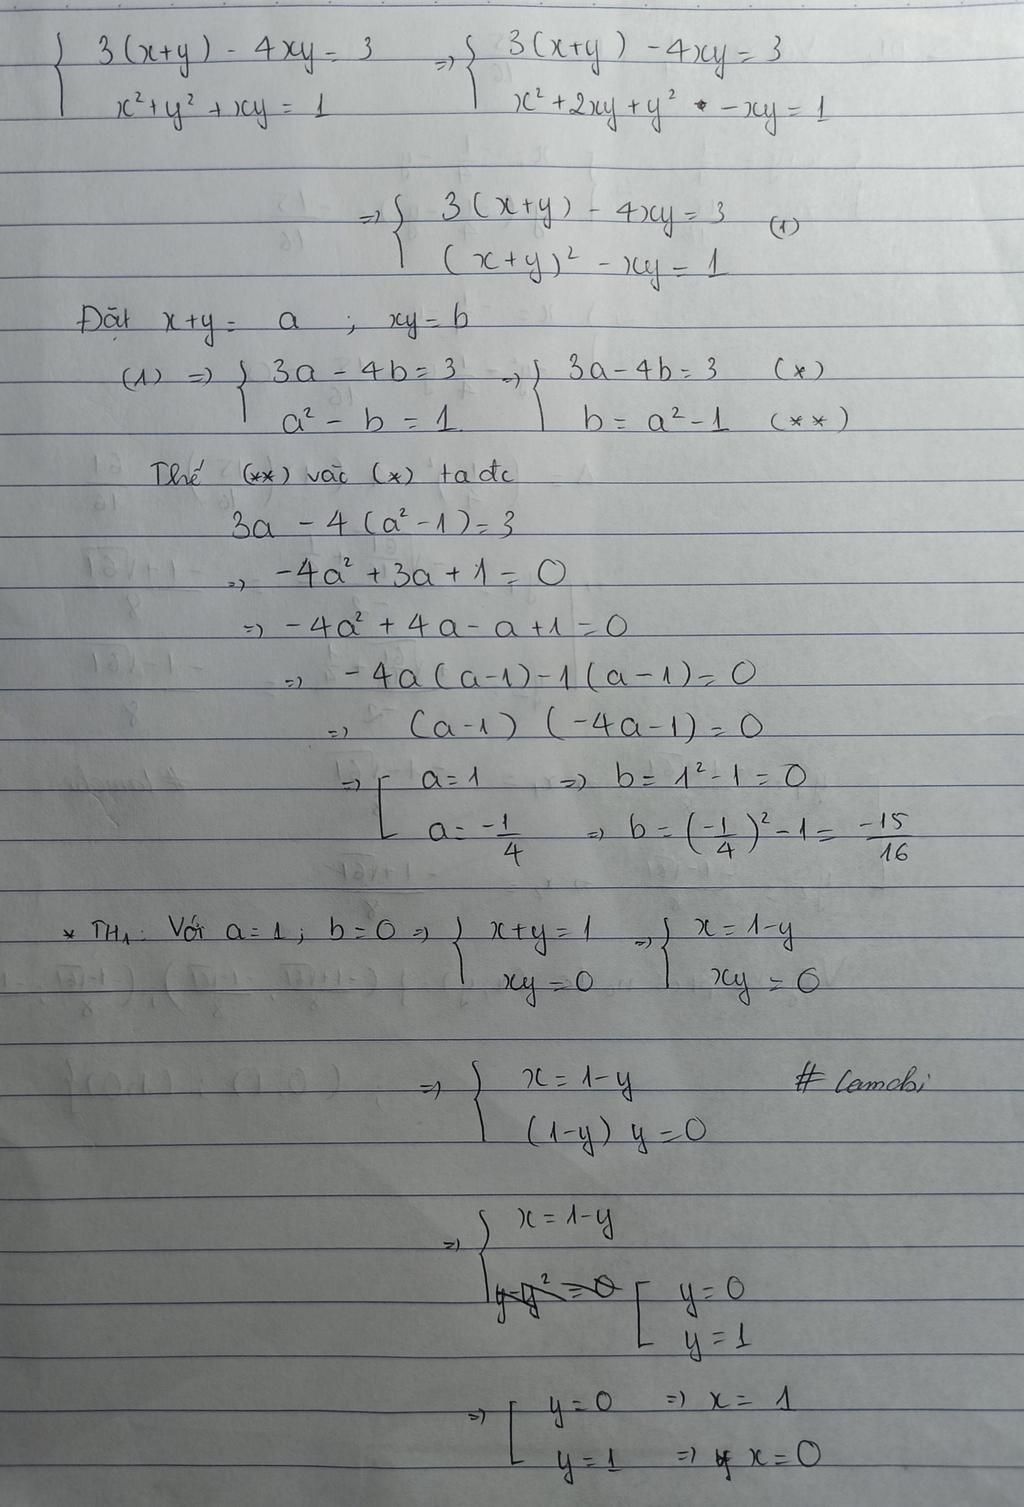 { 3(x+y) - 4xy = 3 => { 3(x+y) - 4xy = 3
x² + y² + xy = 1 x² + 2xy + y² - xy = 1
=> { 3(x+y) - 4xy = 3 (1)
(x+y)² - xy = 1
Đặt x+y = a ; xy = b
(1) => { 3a - 4b = 3 => { 3a - 4b = 3 (*)
a² - b = 1 b = a² - 1 (**)
Thế (**) vào (*) ta đc
3a - 4(a² - 1) = 3
=> -4a² + 3a + 1 = 0
=> -4a² + 4a - a + 1 = 0
=> -4a(a-1) - 1(a-1) = 0
=> (a-1) (-4a-1) = 0
=> [ a = 1 => b = 1² - 1 = 0
a = -1/4 => b = (-1/4)² - 1 = -15/16
* TH1: Với a = 1; b = 0 => { x+y = 1 => { x = 1-y
xy = 0 xy = 0
=> { x = 1-y # Camchi
(1-y) y = 0
=> { x = 1-y
y-y² = 0 [ y = 0
y = 1
=> [ y = 0 => x = 1
y = 1 => x = 0